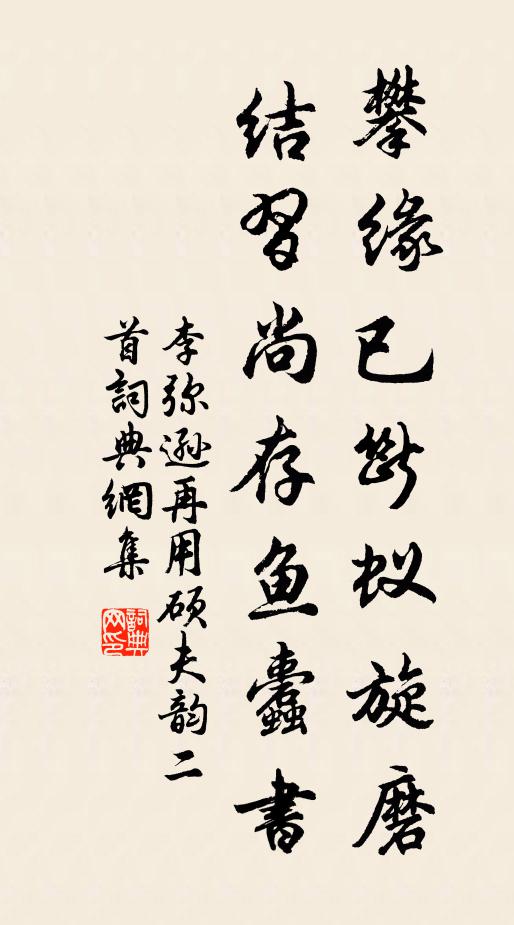 攀缘已断蚁旋磨
结习尚存鱼蠹書
李弥遜再用硕夫韵二
首詞典網集
詞典網印